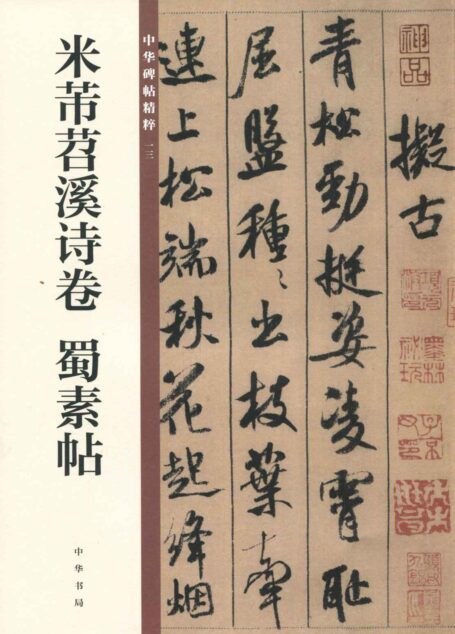 米芾苕溪诗卷 蜀素帖
中华书局
中华碑帖精粹 一三
神品
擬古
青松勁挺姿凌霄耻
屈盤種〻出枝葉牽
連上松端秋花起絳烟